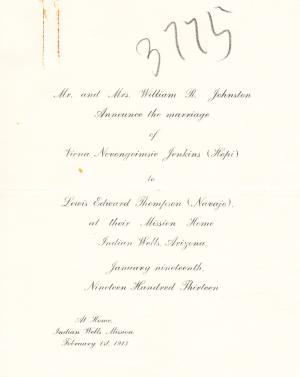 3775
Mr. and Mrs. William R. Johnston
Announce the marriage
of
Viona Novongoimsie Jenkins (Hopi)
to
Lewis Edward Thompson (Navajo),
at their Mission Home
Indian Wells, Arizona,
January nineteenth,
Nineteen Hundred Thirteen
At Home,
Indian Wells Mission
February 1st, 1913